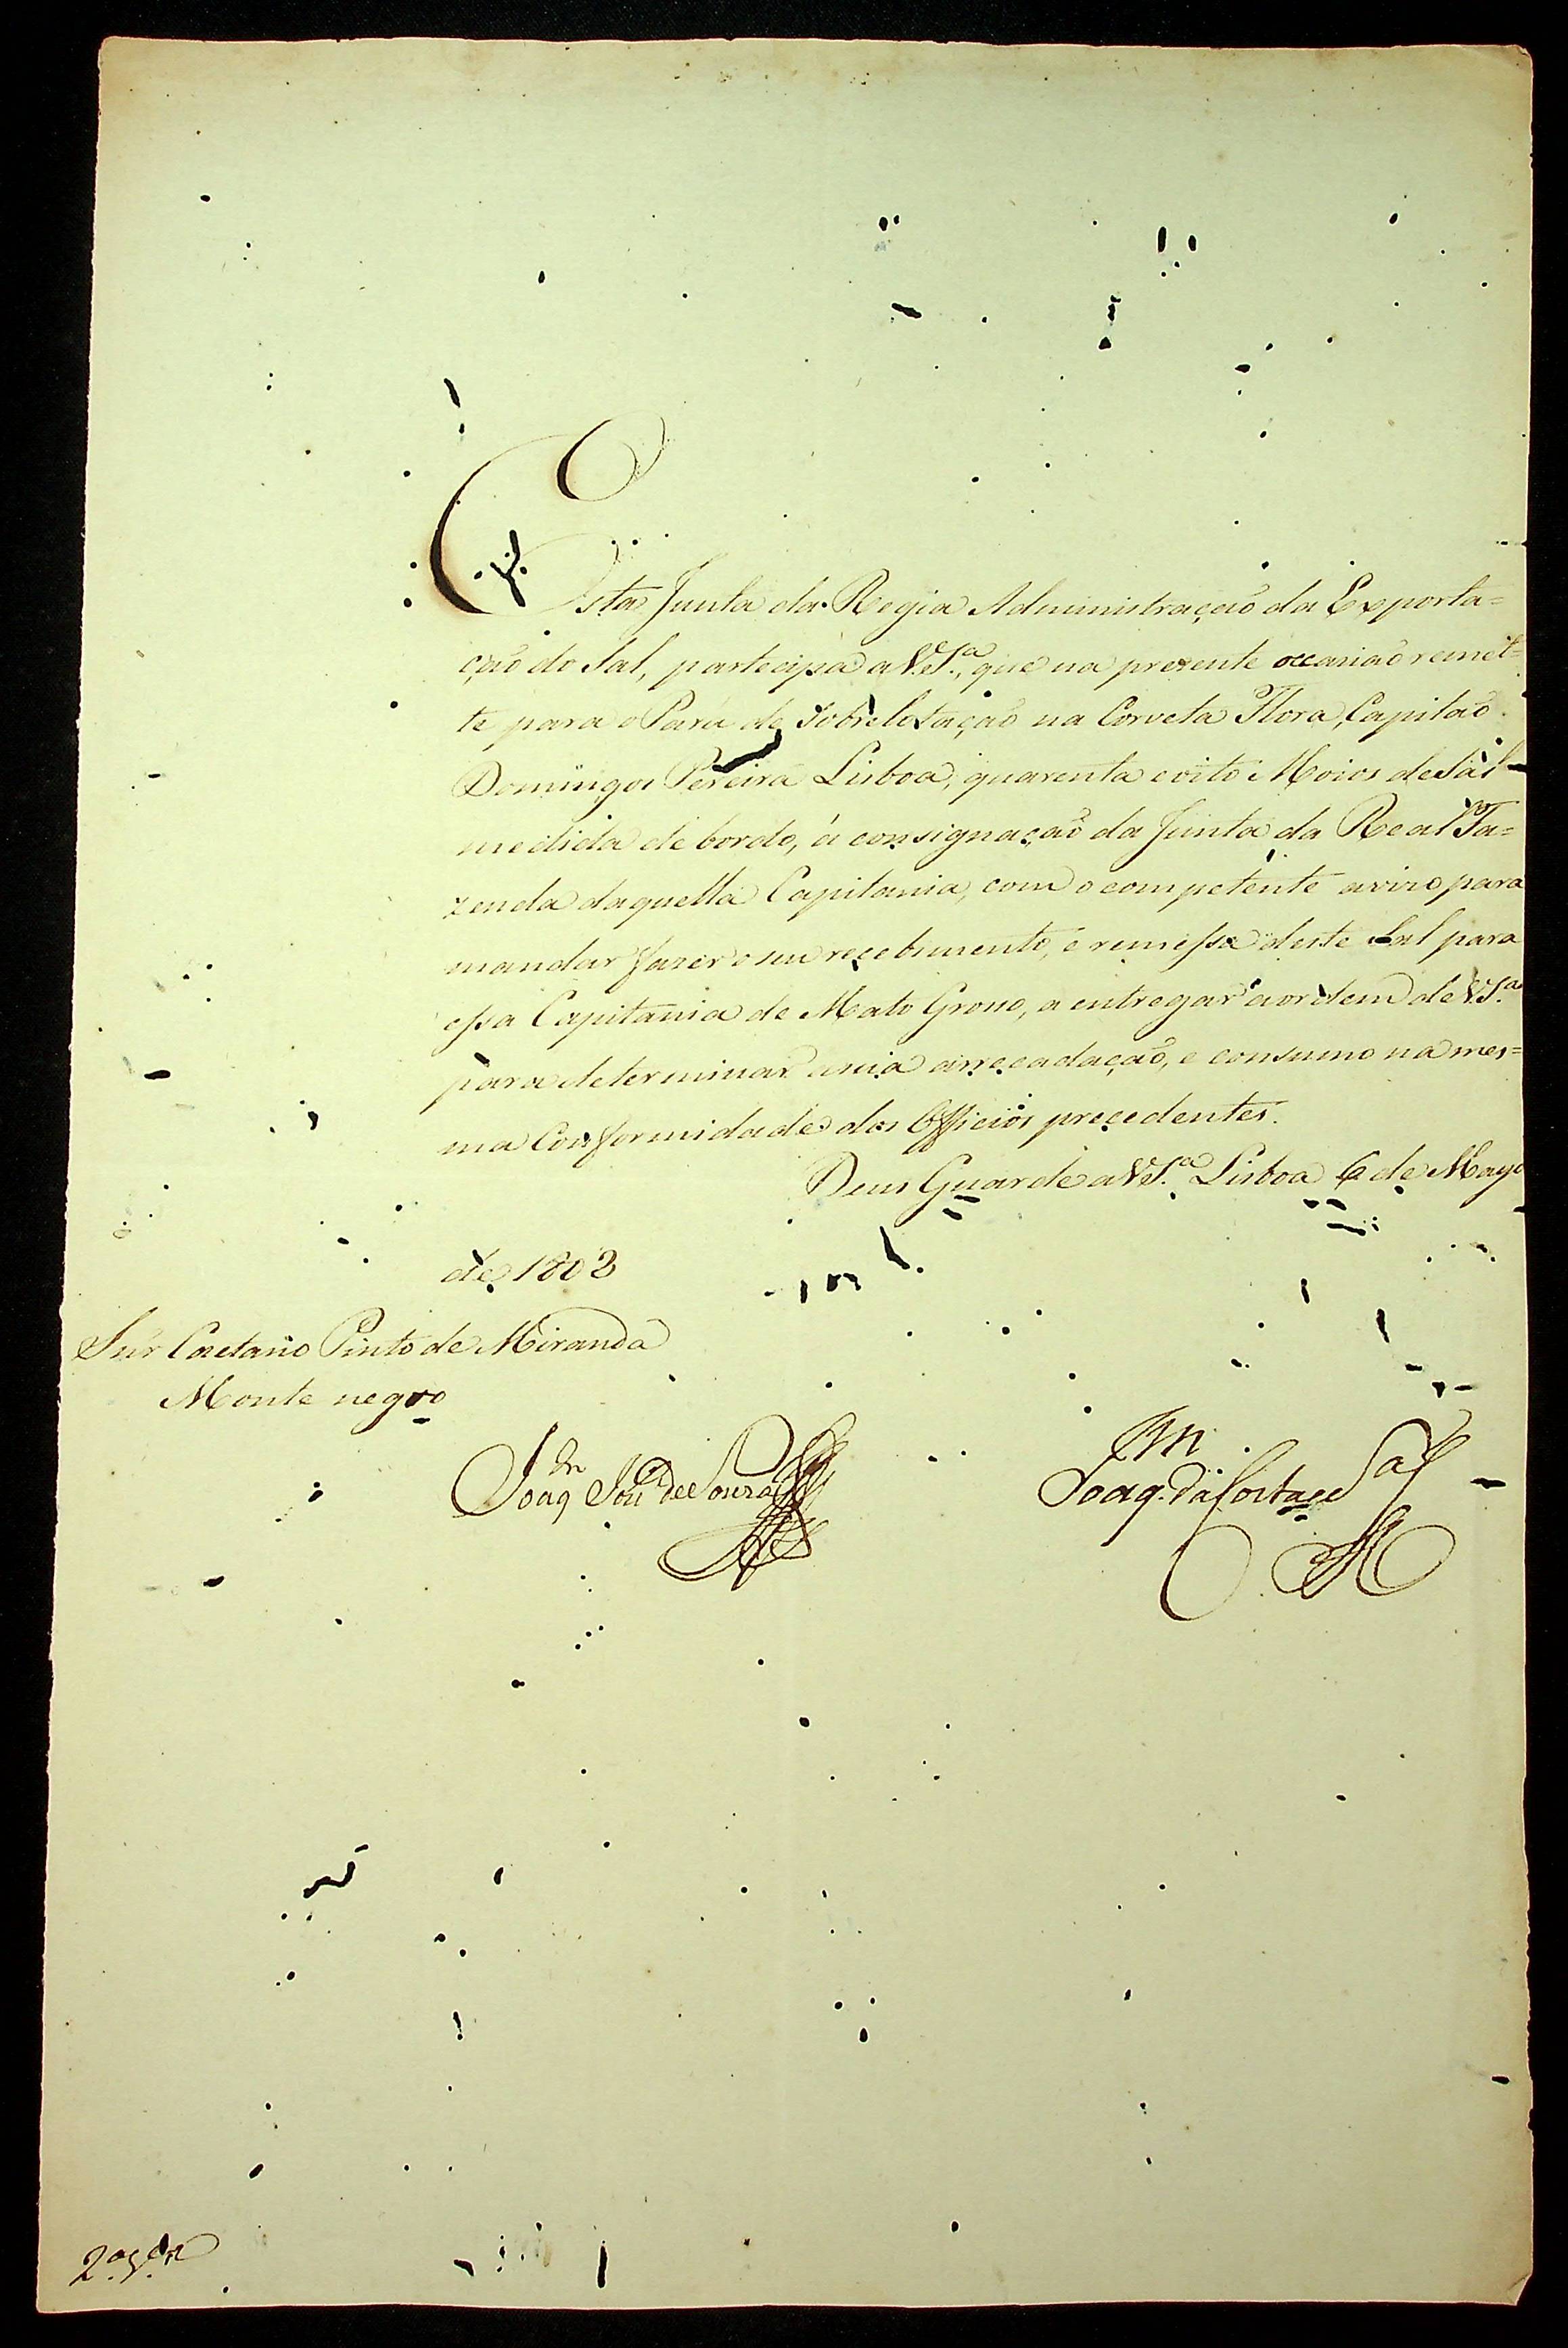 Esta Junta da Regia Administração da Exporta=
ção do Sal, partecipa a V.S.ª, que na prezente occasiaõ remet=
te para o Pará de Sobrelotaçaõ na Corveta Flora, Capitaõ
Domingos Pereira Lisboa, quarenta e oito Moios de Sal
medida de bordo, á consignaçaõ da Junta da Real Fa=
zenda daquella Capitania, com o competente avizo para
mandar fazer o seu recebimento, e remessa deste Sal para
essa Capitania de Mato Grosso, a entregar á ordem de V.S.ª
para determinar a sua arrecadaçaõ, e consumo na mes=
ma Conformidade dos Officios precedentes.
Deus Guarde a V.S.ª Lisboa 6 de Mayo
de 1802
Snr Caetano Pinto de Miranda
Monte negro
Joaq.m Joze de Souza
Joaq.m da Costa e Sá
2.ª V.ª